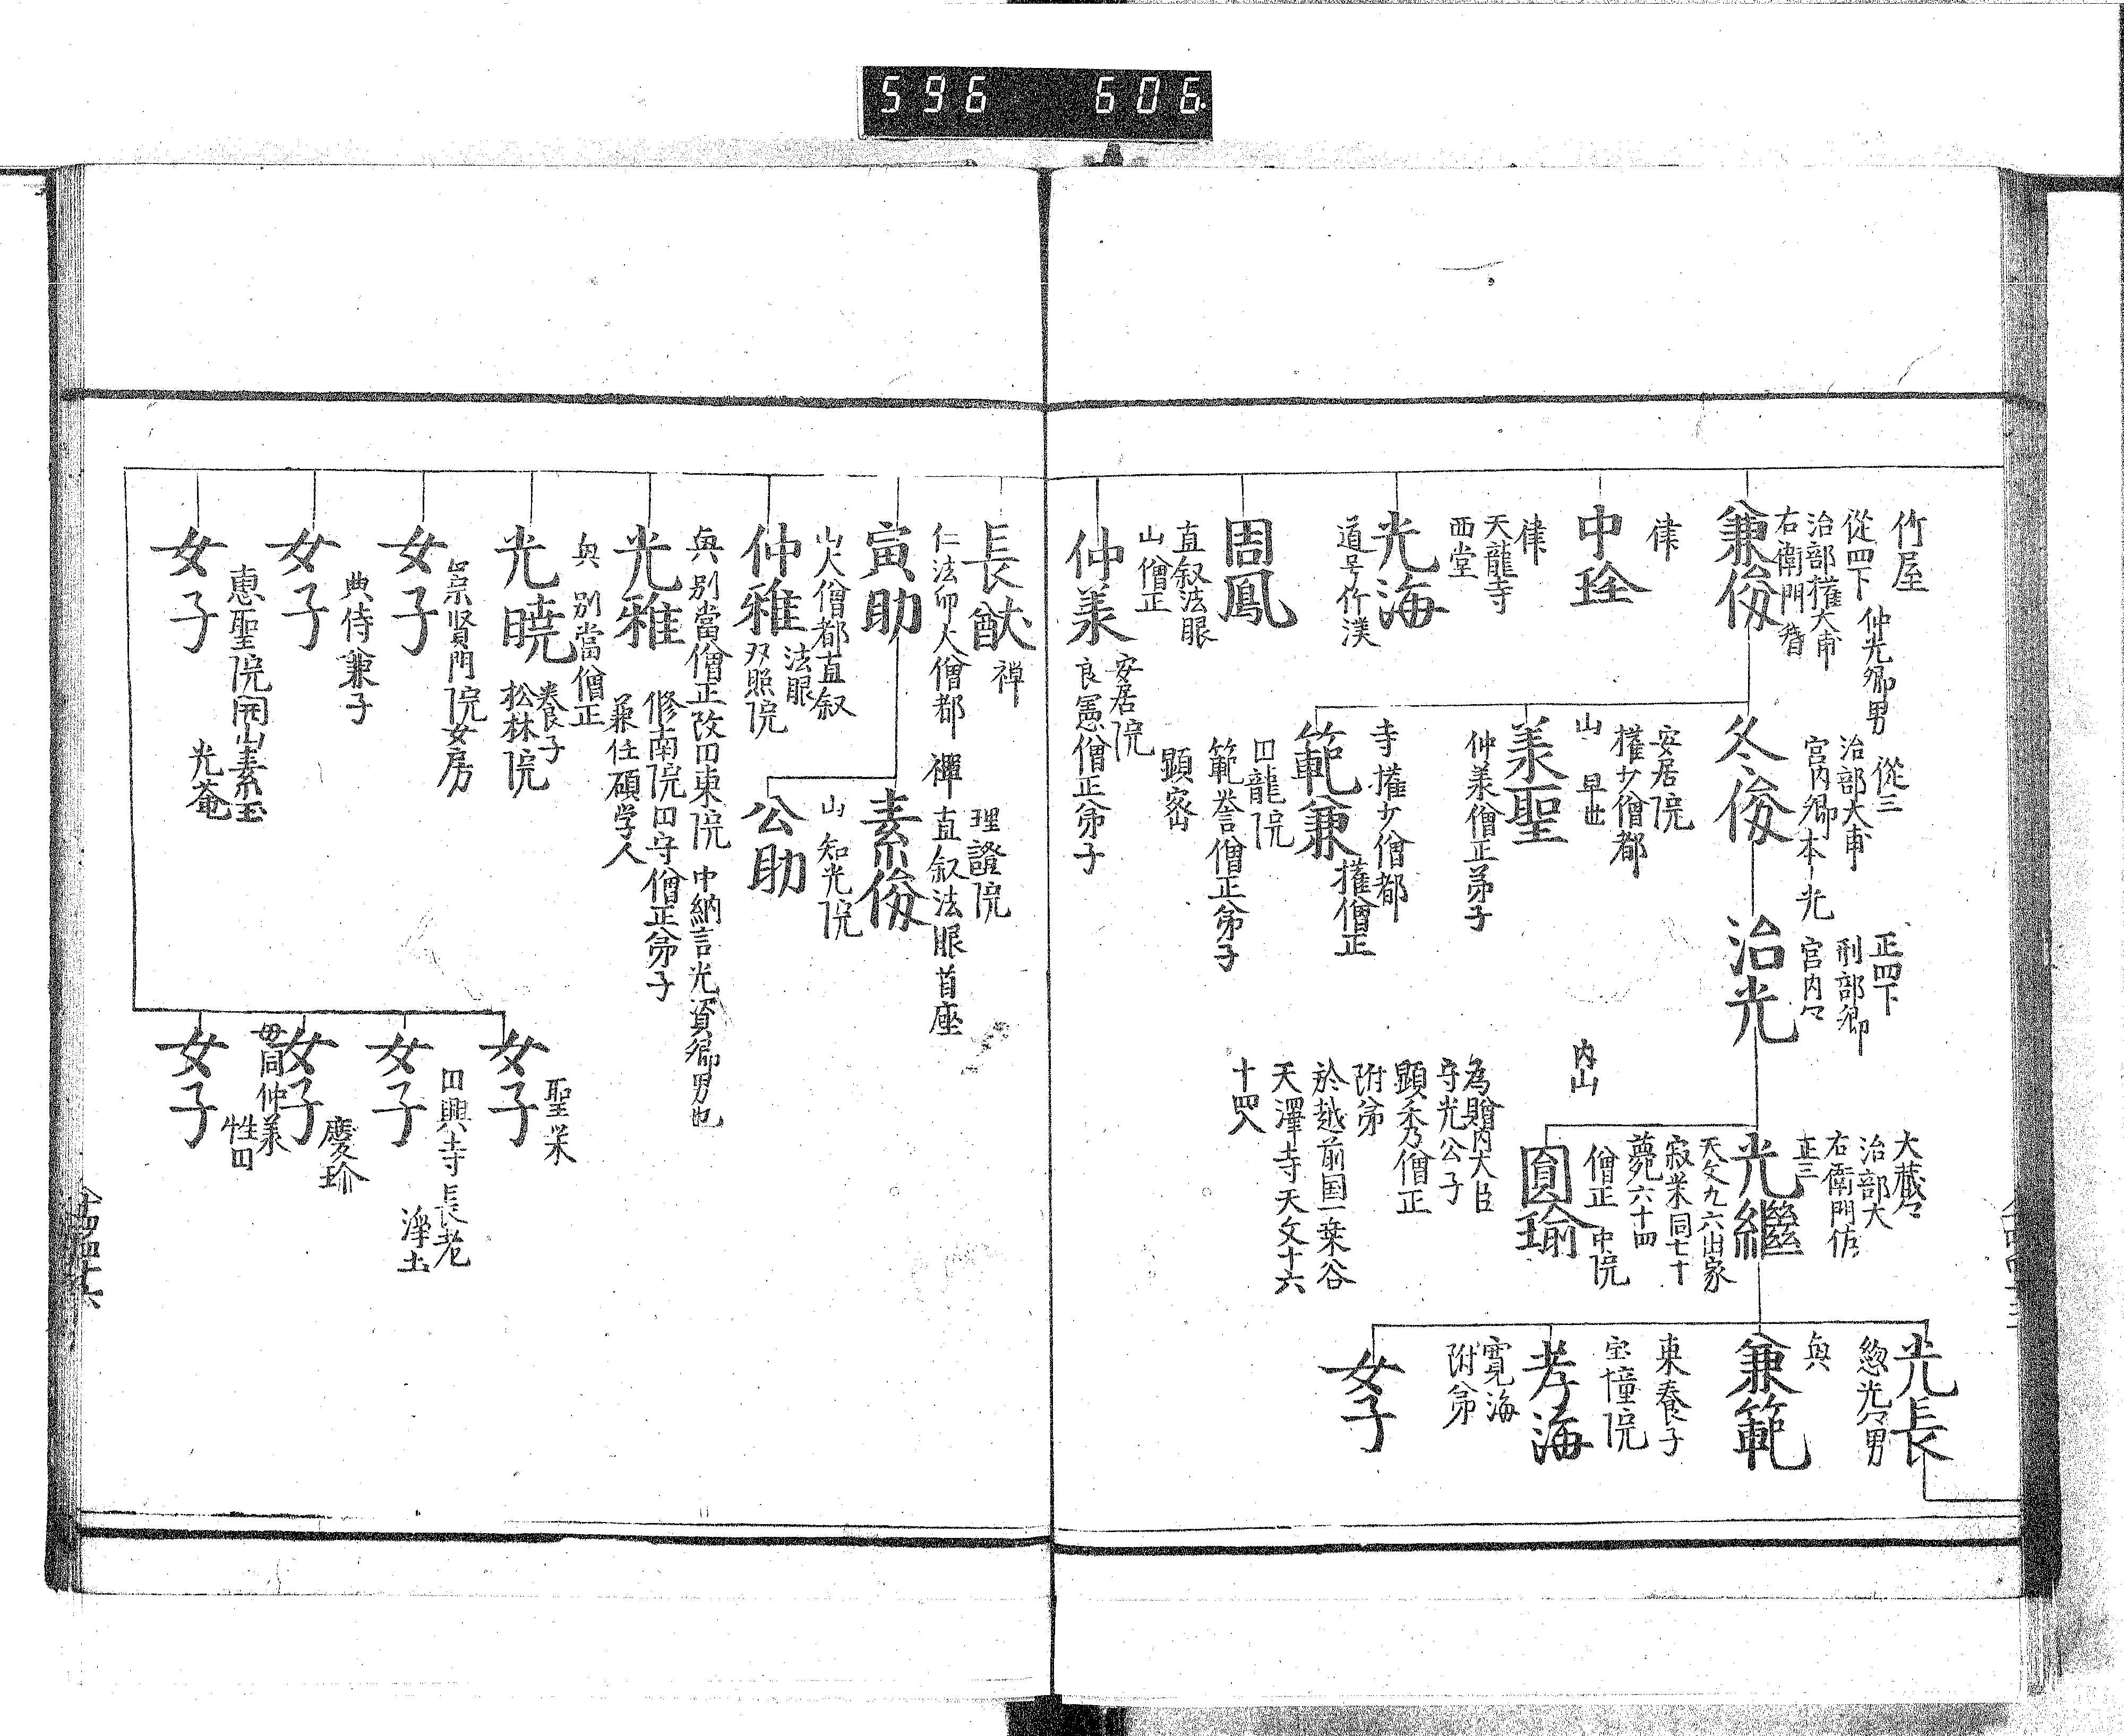 596 606.
竹屋
從四下 仲光卿男
治部權大甫
右衛門督
兼俊
從三
治部大甫
宮内卿本ー光
冬俊
正四下
刑部卿
宮内々
治光
大蔵々
治部大
右衛門佐
正三
光繼
天文九六出家
寂栄同七十
薨六十四
光長
惣光々男
兼範
東養子
宝幢院
孝海
寛海
附弟
女子
内山
僧正 中院
圓瑜
為贈内大臣
守光公子
顕秀乃僧正
附弟
於越前国一乗谷
天澤寺天文十六
十四入
安居院
權少僧都
山 早世
兼聖
仲兼僧正弟子
寺權少僧都
權僧正
範兼
範誉僧正弟子
顕密
律
中詮
律
天龍寺
西堂
光海
道号竹渓
周鳳
直叙法眼
山僧正
仲兼
安居院
良憲僧正弟子
長猷
禅
仁法印大僧都
寅助
禅
理證院
直叙法眼首座
素俊
山 知光院
公助
山大僧都直叙
法眼
仲雅
双照院
別當僧正改 東院 中納言光資卿男也
光雅
修南院 守僧正弟子
兼住碩学人
別當僧正
光暁
養子
松林院
女子
崇賢門院女房
女子
典侍兼子
女子
恵聖院開山素玉
光菴
女子
聖栄
女子
興寺長老
浄土
女子
慶珍
母同仲兼
女子